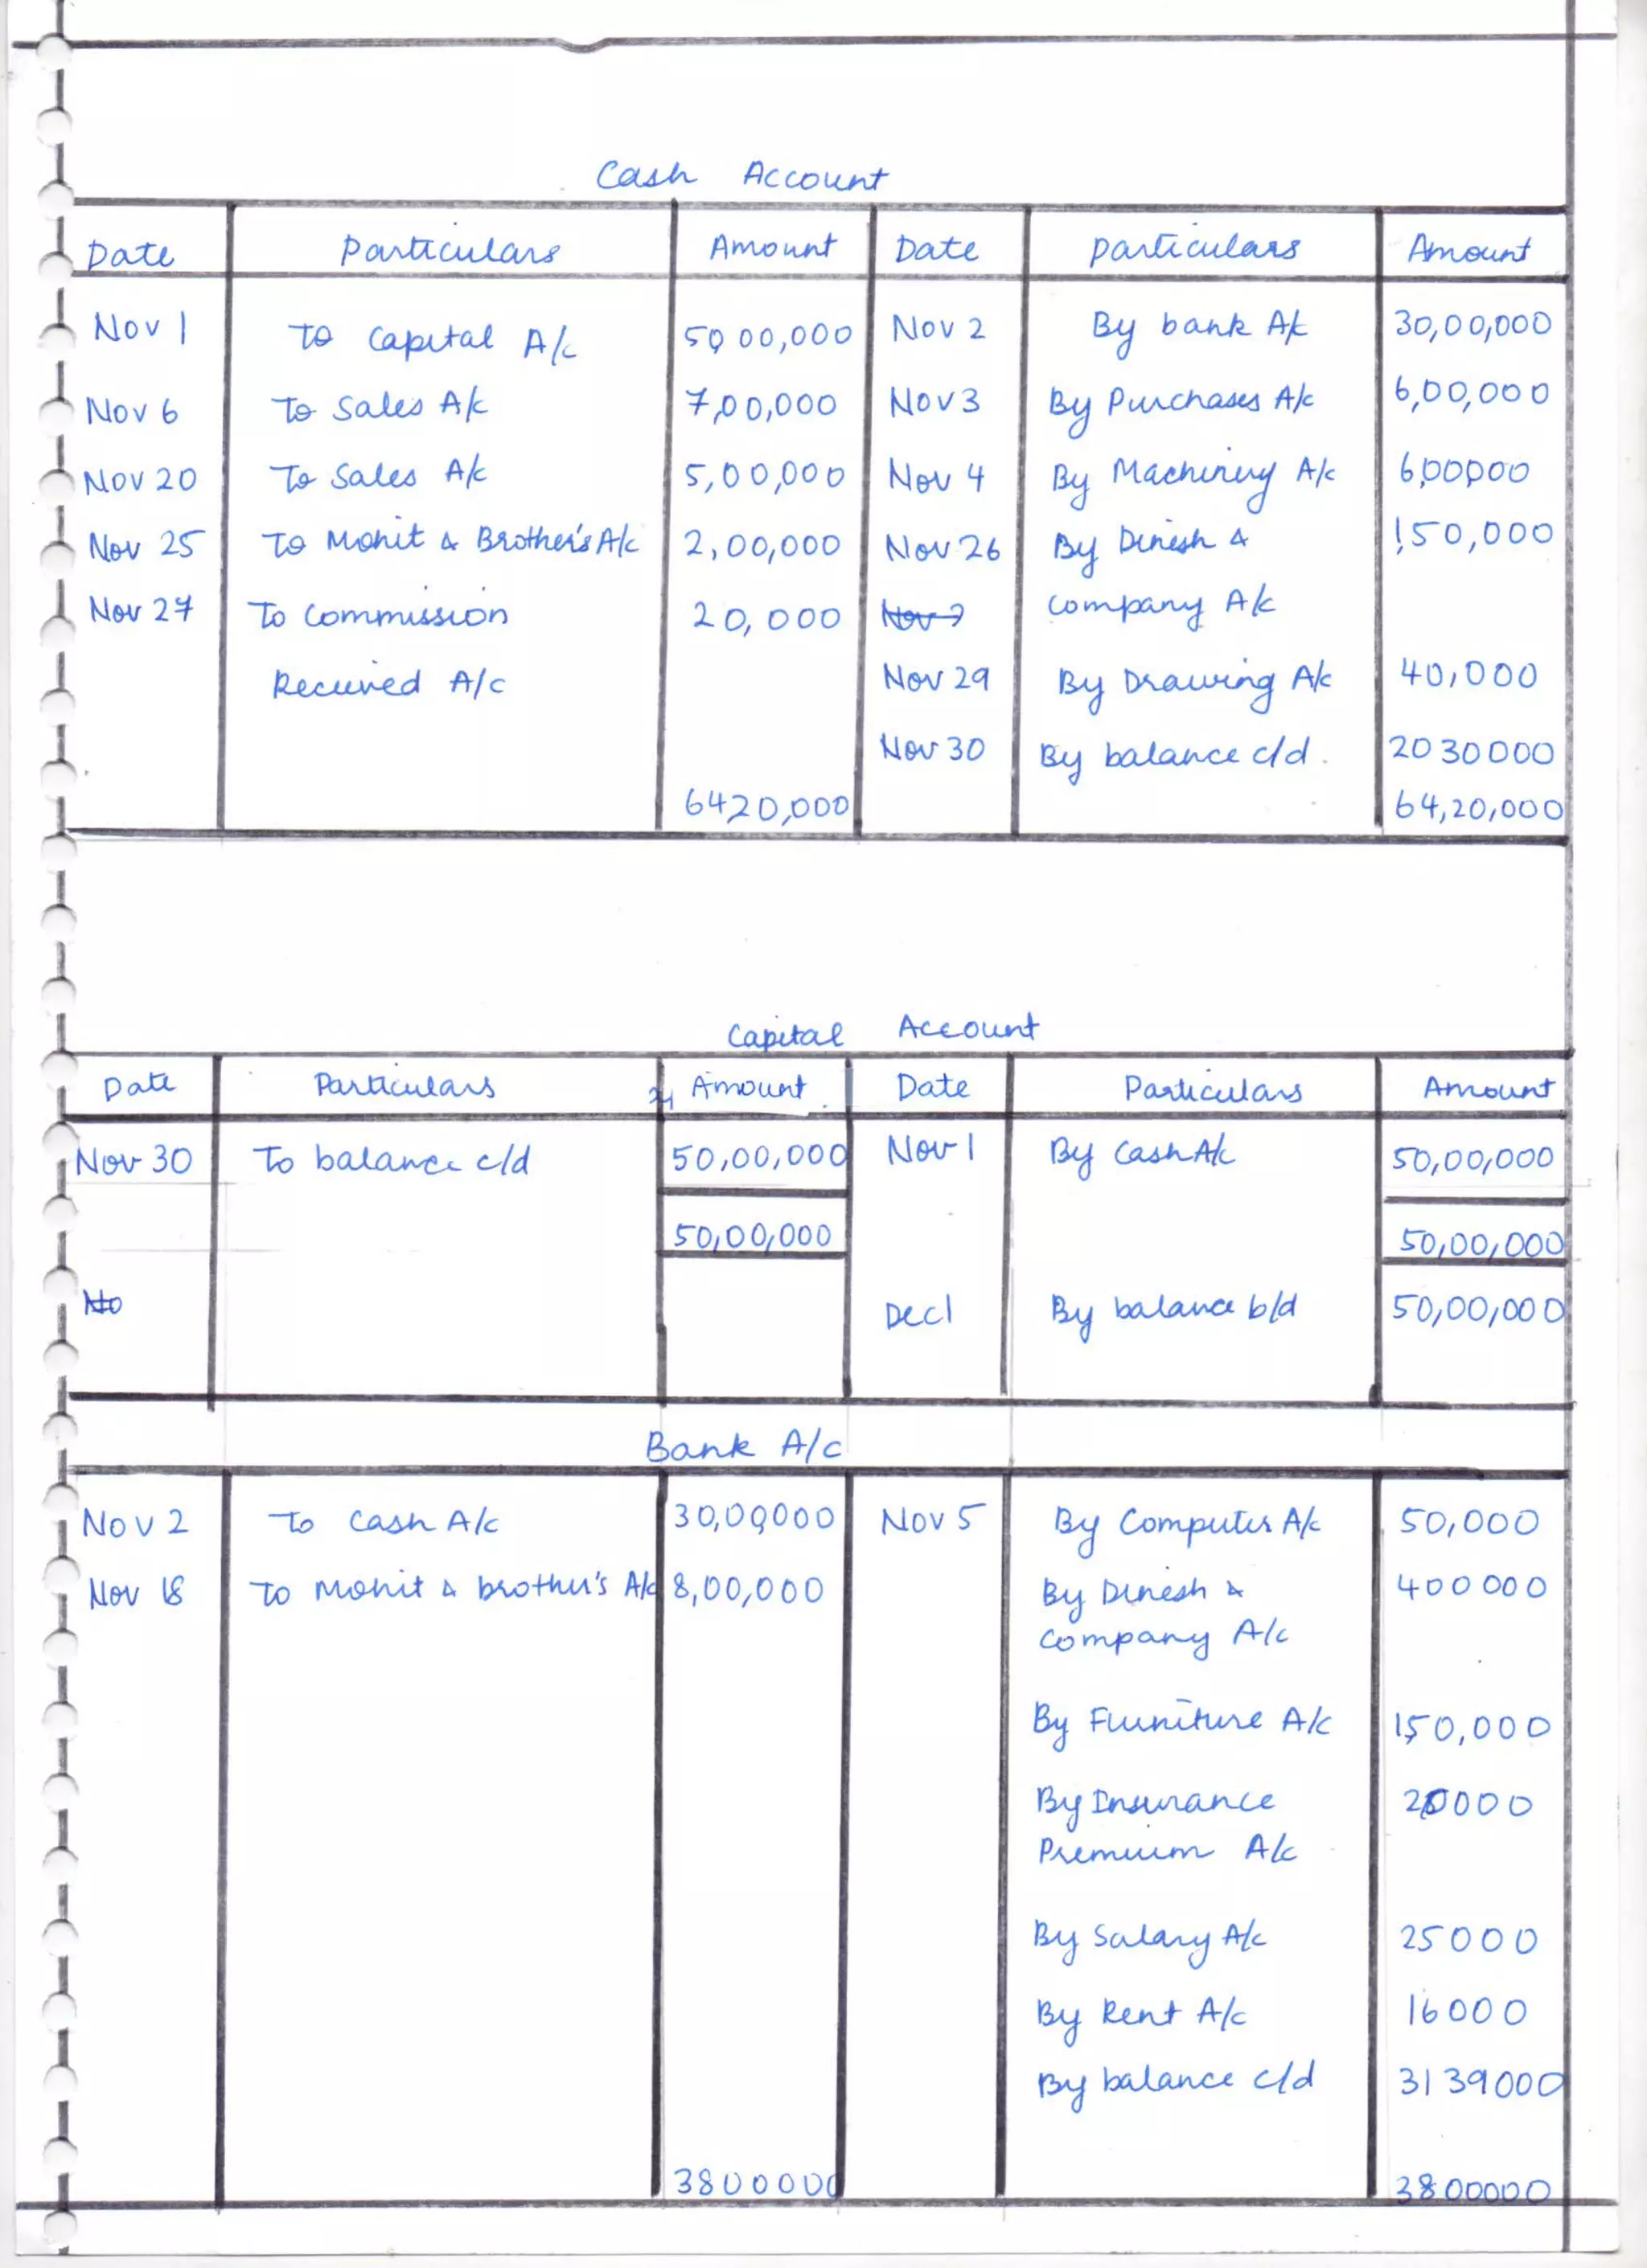 Cash Account
Date Particulars Amount Date Particulars Amount
Nov 1 To Capital A/c 50 00,000 Nov 2 By bank A/c 30,00,000
Nov 6 To Sales A/c 7,00,000 Nov 3 By Purchases A/c 6,00,000
Nov 20 To Sales A/c 5,00,000 Nov 4 By Machinery A/c 6,00,000
Nov 25 To Mohit & Brother's A/c 2,00,000 Nov 26 By Dinesh & 1,50,000
Nov 27 To Commission 20,000 Company A/c
Received A/c Nov 29 By Drawing A/c 40,000
Nov 30 By balance c/d. 2030000
6420,000 64,20,000
Capital Account
Date Particulars Amount Date Particulars Amount
Nov 30 To balance c/d 50,00,000 Nov 1 By Cash A/c 50,00,000
50,00,000 50,00,000
Dec 1 By balance b/d 50,00,000
Bank A/c
Nov 2 To Cash A/c 30,00,000 Nov 5 By Computer A/c 50,000
Nov 18 To Mohit & brother's A/c 8,00,000 By Dinesh & 400000
Company A/c
By Furniture A/c 1,50,000
By Insurance 20000
Premium A/c
By Salary A/c 25000
By Rent A/c 16000
By balance c/d 3139000
3800000 3800000